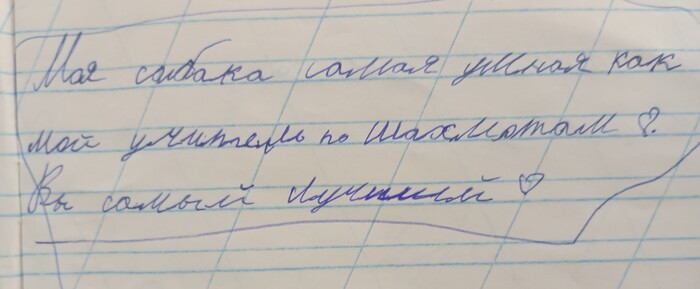 Моя собака самая умная как
мой учитель по шахматам ?.
Вы самый лучший ♡